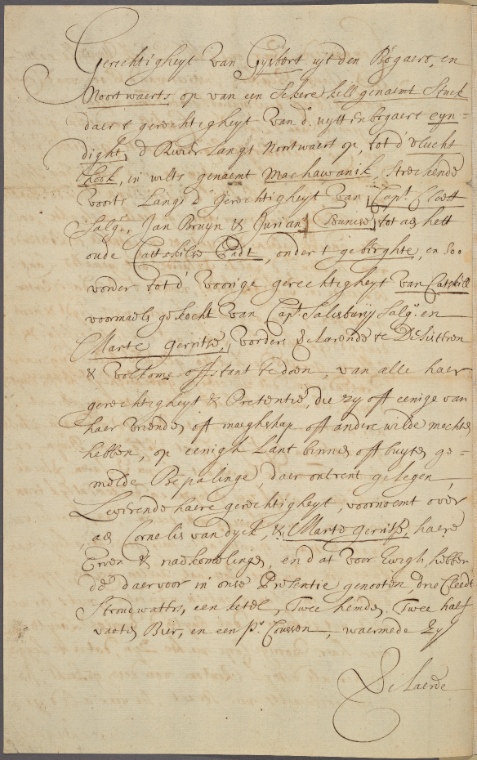 Gerechtigheyt van Gysbert uyt den Bogaert, en
Noortwaerts op van een Sekere kill genaemt Stuck
daer t gerechtigheyt van d'. uytt en bogaert eyn-
dight, d Rivier Langs Noortwaert op, tot d' vlucht
hoek, in wilts genaemt Machawanik, Streckende
voorts Langs d' gerechtigheyt van Capt. Cleett
Salgr. Jan Bruyn & Jurian Teunisse, tot aen hett
oude Cattskills Padt, onder t geberghte, en Soo
vorder tot d' voorige gerechtigheyt van Catskill
voormaels gekocht van Capt. Salisburÿ Salgr. en
Marte Gerritse, vorders verklarende te Desisteren
& volkomen offstant te doen, van alle haer
gerechtigheyt & Pretentie, die zy off eenige van
haer vrienden off maeghschap off andere wilde mochten
hebben, op eenigh Lant binnen off buyten ge-
melde Bepalinge, daer ontrent gelegen
Leverende haere gerechtigheyt, voornoemt over
aen Cornelis van dyck, & Marte Gerritse, haere
Erven & nackomelinge, en dat voor Ewigh, hebben
de daervoor in onse Presentie genooten, drie Cleede
Strouwatters, een ketel, Twee hemden, Twee half
vaties Bier, en een pr. Coussen, waermede Zy